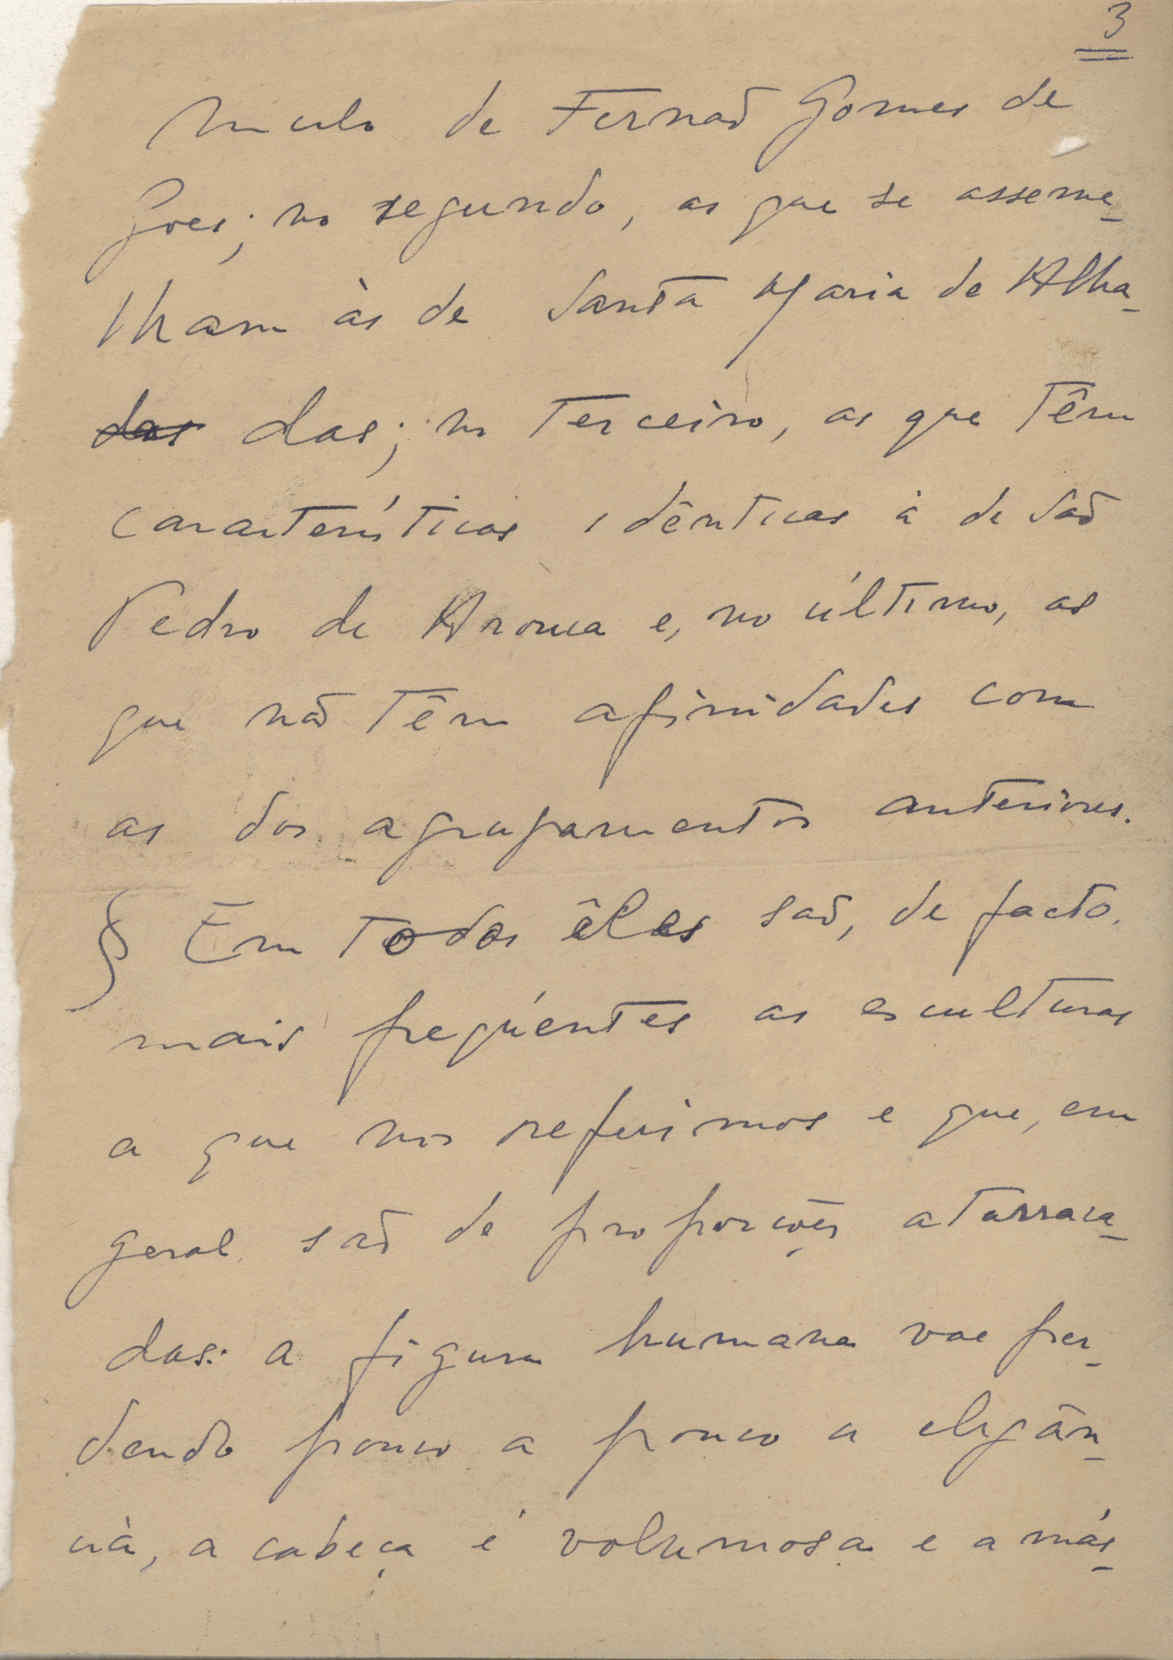 3
mulo de Fernaõ Gomes de
Goes; no segundo, as que se asseme-
lham às de Santa Maria de Alha-
das das; no terceiro, as que têm
caracteristicas idênticas à de Saõ
Pedro de Arouca e, no último, as
que naõ têm afinidades com
as dos agrupamentos anteriores.
§ Em todos êles saõ, de facto,
mais freqúentes as esculturas
a que nos referimos e que, em
geral, saõ de proporções atarraca-
das: a figura humana vae per-
dendo pouco a pouco a elegân-
cia, a cabeça é volumosa e a más-